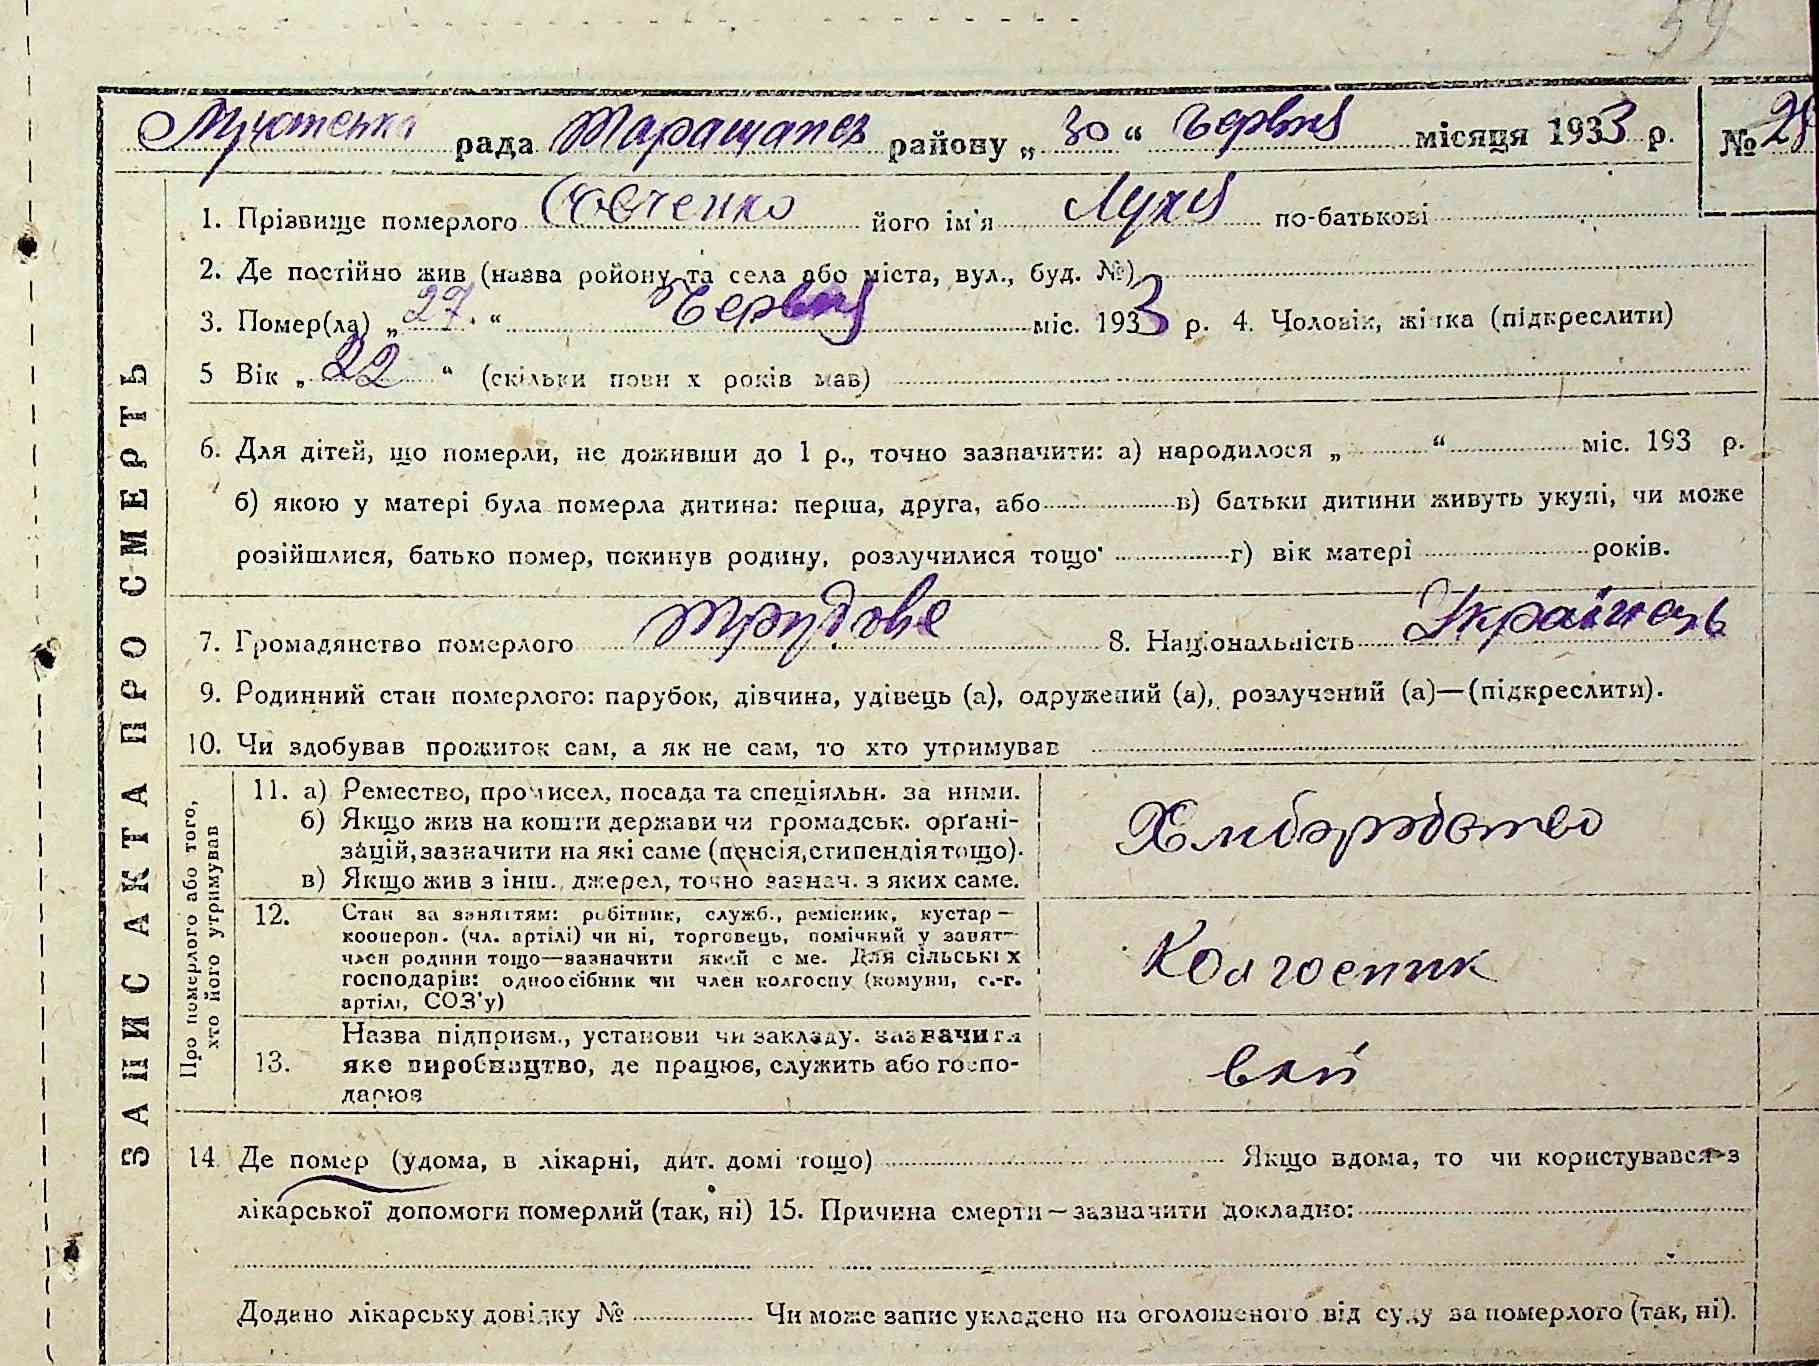 54
рада Таращанск району „30“ Червня місяця 1933 р. №
1. Прізвище померлого Совченко його ім'я Лукія по-батькові
2. Де постійно жив (назва ройону та села або міста, вул., буд. №)
3. Помер(ла) „27“ Червня міс. 1933 р. 4. Чоловік, жінка (підкреслити)
5 Вік „22“ (скільки повних років мав)
6. Для дітей, що померли, не доживши до 1 р., точно зазначити: а) народилося „ “ міс. 193 р.
б) якою у матері була померла дитина: перша, друга, або в) батьки дитини живуть укупі, чи може
розійшлися, батько помер, покинув родину, розлучилися тощо г) вік матері років.
7. Громадянство померлого Трудове 8. Національність Українець
9. Родинний стан померлого: парубок, дівчина, удівець (а), одружений (а), розлучений (а)—(підкреслити).
10. Чи здобував прожиток сам, а як не сам, то хто утримував
ЗАПИС АКТА ПРО СМЕРТЬ
Про померлого або того,
хто його утримував
11. а) Ремество, промисел, посада та спеціяльн. за ними.
б) Якщо жив на кошти держави чи громадськ. орґані-
зацій, зазначити на які саме (пенсія, стипендія тощо).
в) Якщо жив з інш. джерел, точно зазнач. з яких саме.
Хлиборобство
12. Стан за заняттям: робітник, служб., ремісник, кустар—
коопероп. (чл. артілі) чи ні, торговець, помічний у занят—
член родини тощо—зазначити який с ме. Для сільських
господарів: одноосібник чи член колгоспу (комуни, с.-г.
артілі, СОЗ'у)
Колгоспник
13. Назва підприєм., установи чи закладу. зазначити
яке виробництво, де працює, служить або госпо-
дарює
14 Де помер (удома, в лікарні, дит. домі тощо) Якщо вдома, то чи користувався з
лікарської допомоги померлий (так, ні) 15. Причина смерти—зазначити докладно:
Додано лікарську довідку № Чи може запис укладено на оголошеного від суду за померлого (так, ні).